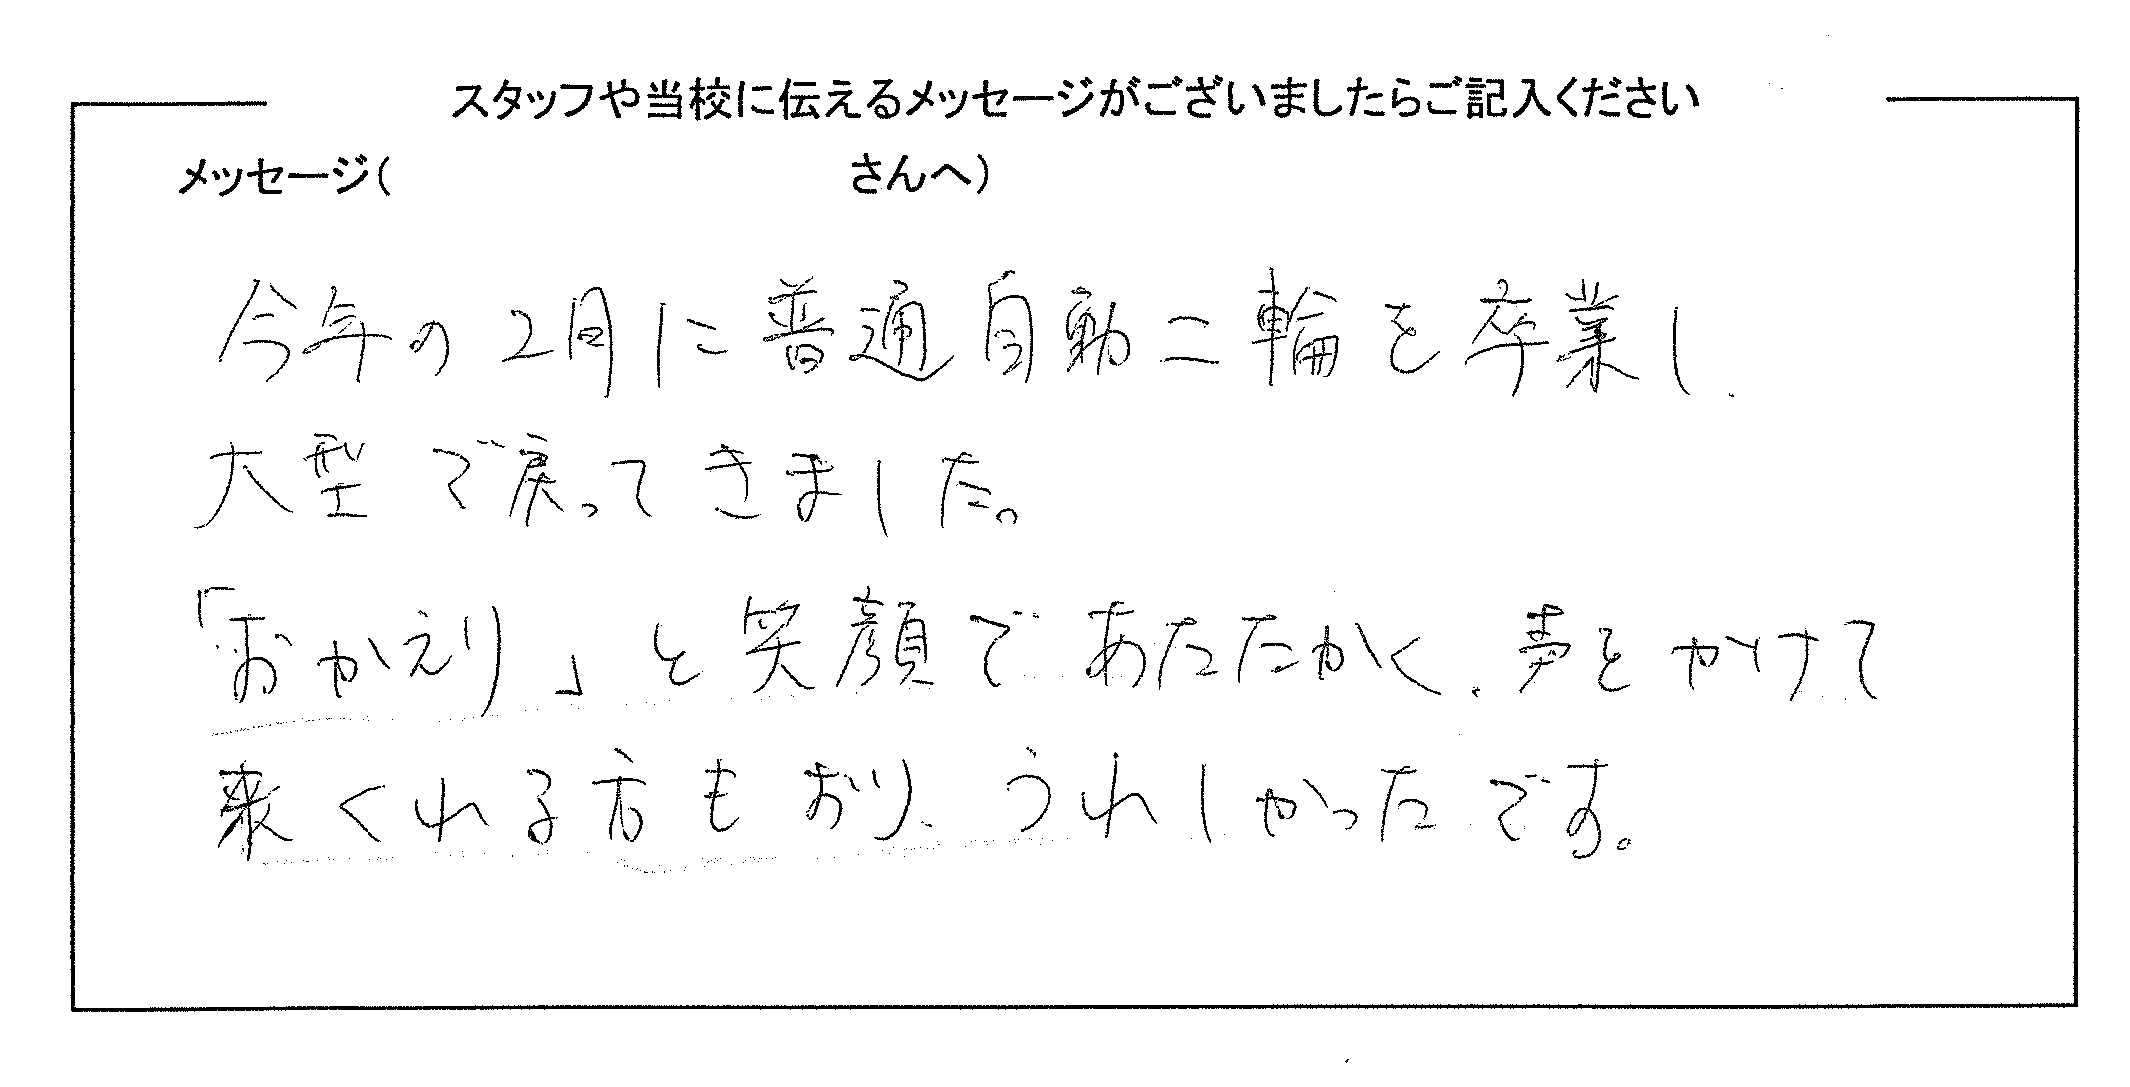 スタッフや当校に伝えるメッセージがございましたらご記入ください
メッセージ( さんへ)
今年の2月に普通自動二輪を卒業し、
大型で戻ってきました。
「おかえり」と笑顔であたたかく、声をかけて
来くれる方もおり、うれしかったです。